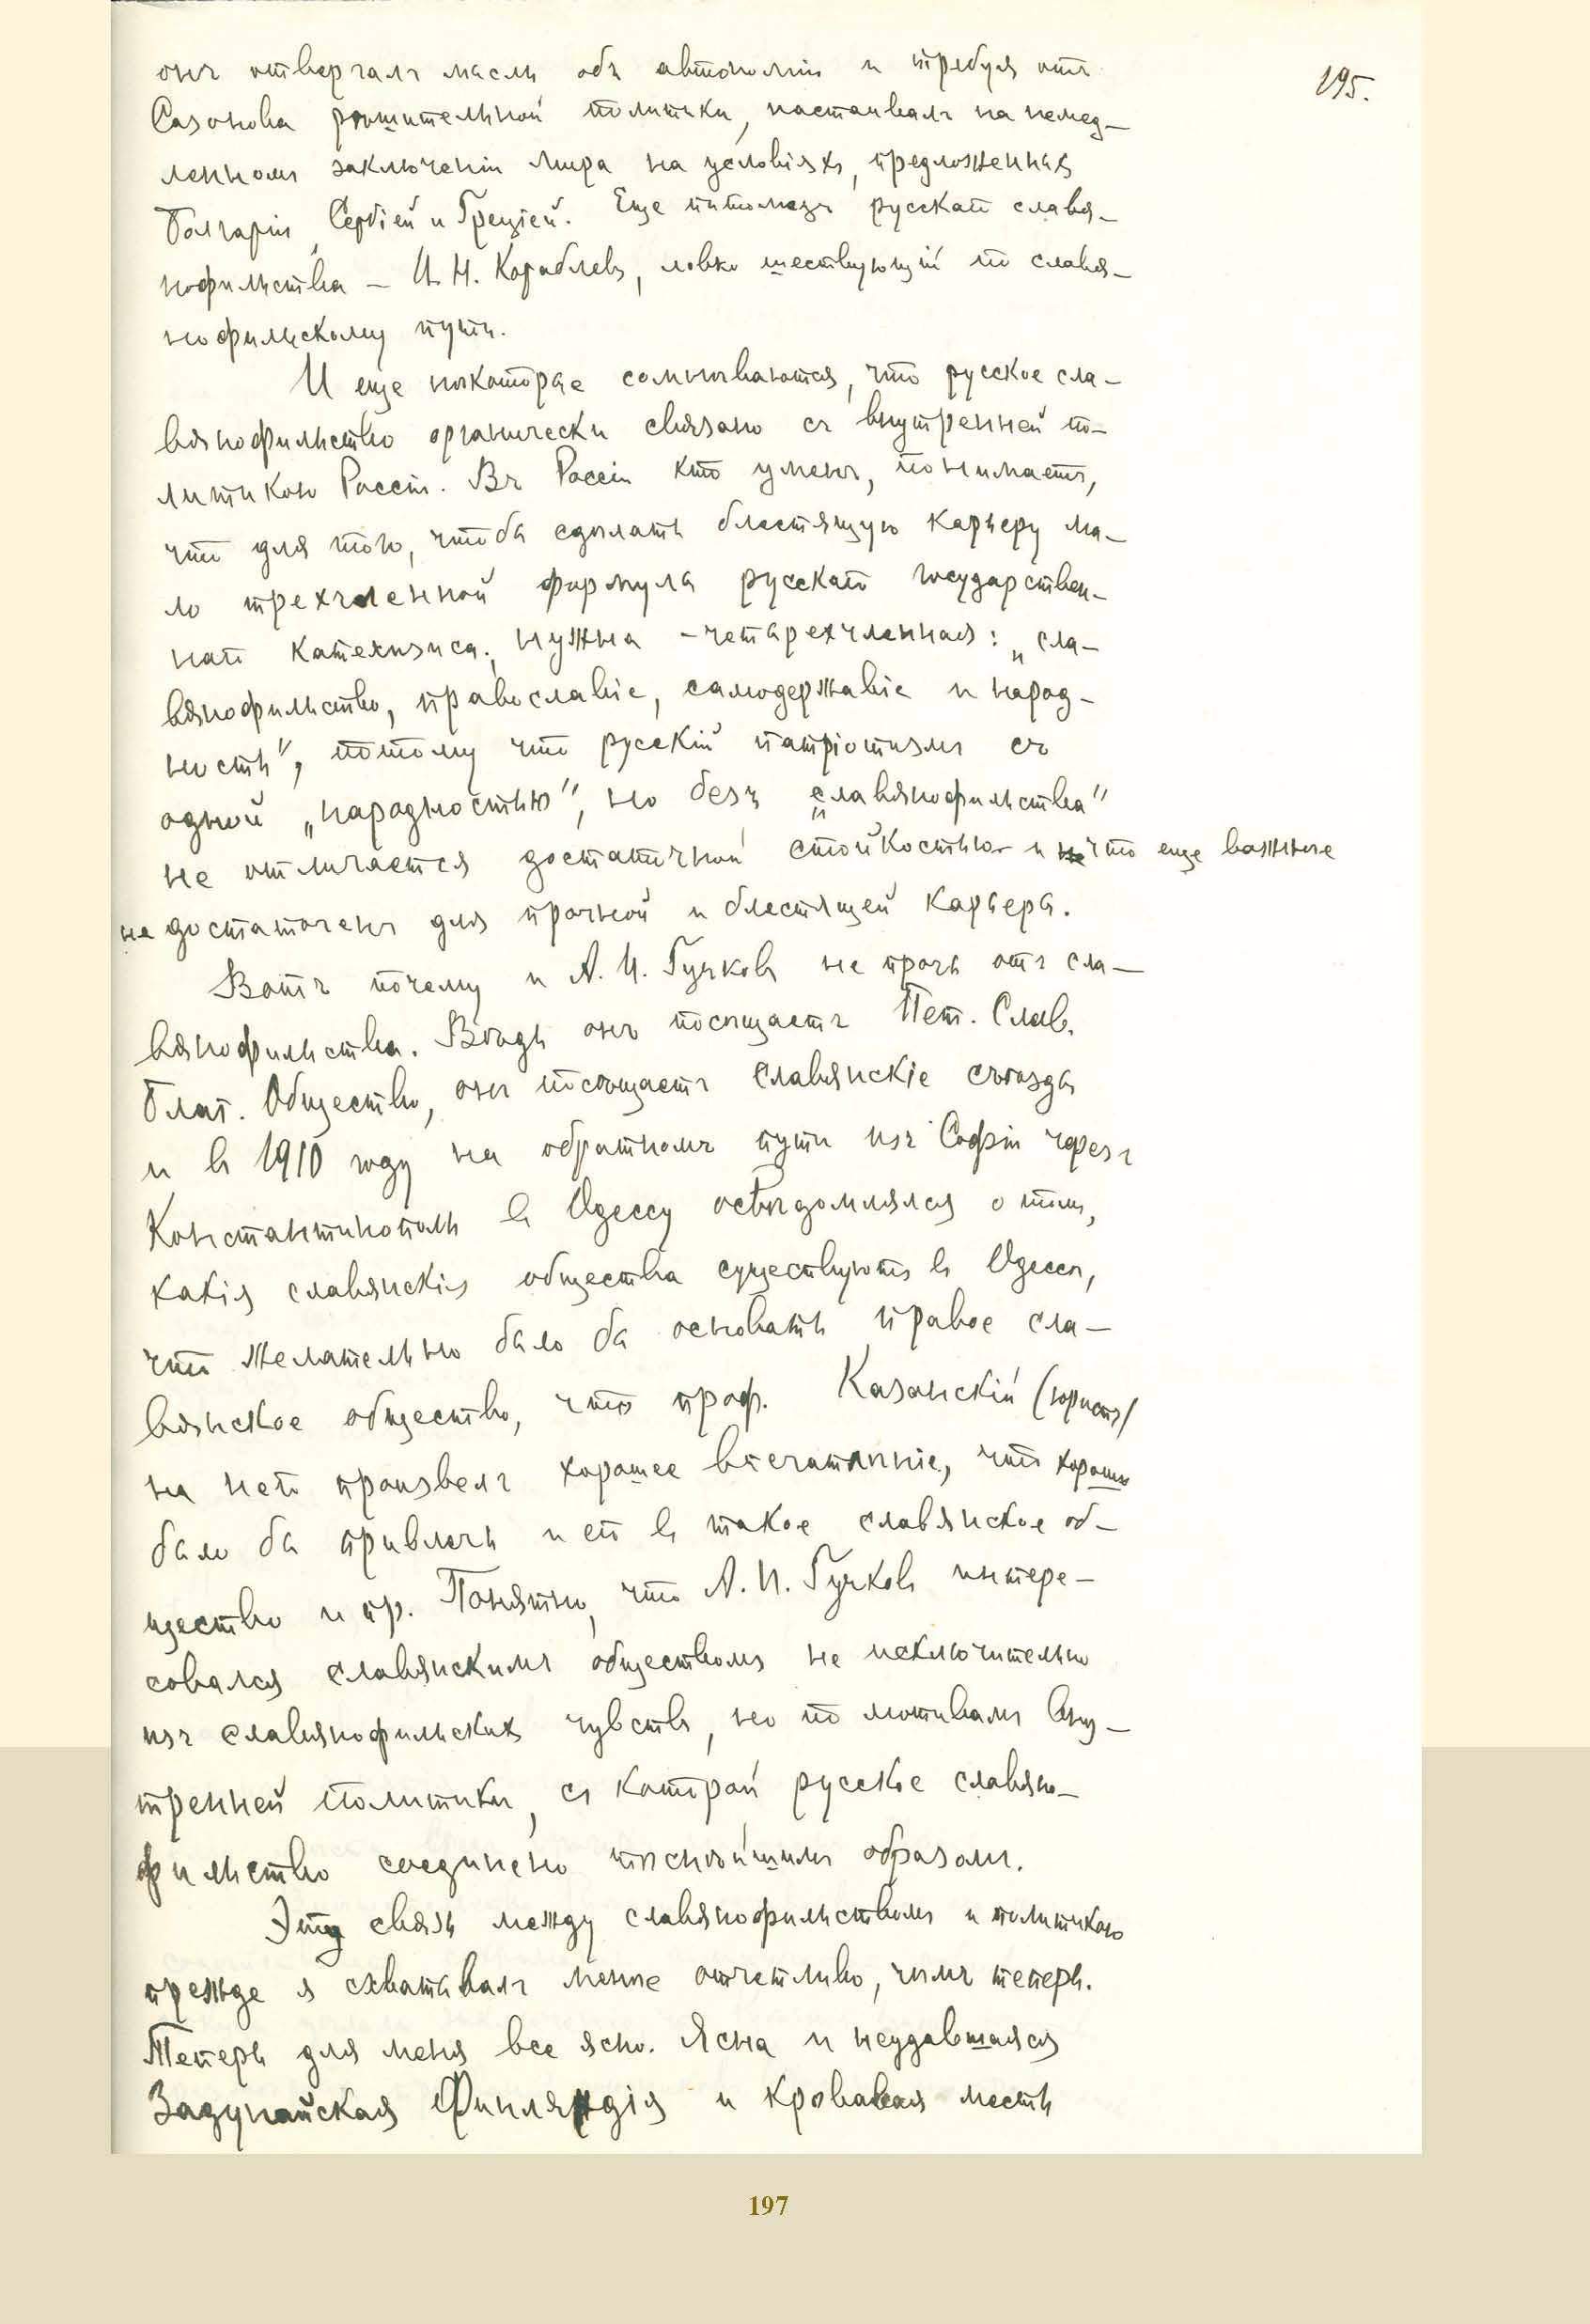 195.
онъ отвергалъ мысль объ автономіи и требуя отъ
Сазонова рѣшительной политики, настаивалъ на немед-
ленномъ заключеніи мира на условіяхъ, предложенныхъ
Болгаріи Сербіей и Греціей. Еще питомецъ русскаго славя-
нофильства – И. Н. Кораблевъ, ловко шествующій по славя-
нофильскому пути.
И еще нѣкоторые сомнѣваются, что русское сла-
вянофильство органически связано съ внутренней по-
литикою Россіи. Въ Россіи кто уменъ, понимаетъ,
что для того, чтобы сдѣлать блестящую карьеру ма-
ло трехчленной формулы русскаго государствен-
наго катехизиса. Нужна – четырехчленная: „сла-
вянофильство, православіе, самодержавіе и народ-
ность", потому что русскій патріотизмъ съ
одной „народностью", но безъ „славянофильства"
не отличается достаточной стойкостью и что еще важнѣе
не достаточенъ для прочной и блестящей карьеры.
Вотъ почему и А. И. Гучковъ не прочь отъ сла-
вянофильства. Вѣдь онъ посѣщаетъ Пет. Слав.
Благ. Общество, онъ посѣщаетъ славянскіе съѣзды
и въ 1910 году на обратномъ пути изъ Софіи чрезъ
Константинополь въ Одессу освѣдомлялся о томъ,
какія славянскія общества существуютъ въ Одессѣ,
что желательно было бы основать правое сла-
вянское общество, что проф. Казанскій (юристъ)
на него произвелъ хорошее впечатлѣніе, что хорошо
было бы привлечь и его въ такое славянское об-
щество и пр. Понятно, что А. И. Гучковъ интере-
совался славянскимъ обществомъ не исключительно
изъ славянофильскихъ чувствъ, но по мотивамъ вну-
тренней политики, съ которой русское славяно-
фильство соединено тѣснѣйшимъ образомъ.
Эту связь между славянофильствомъ и политикою
прежде я схватывалъ менѣе отчетливо, чѣмъ теперь.
Теперь для меня все ясно. Ясна и неудавшаяся
Задунайская Финляндія и кровавая месть
197